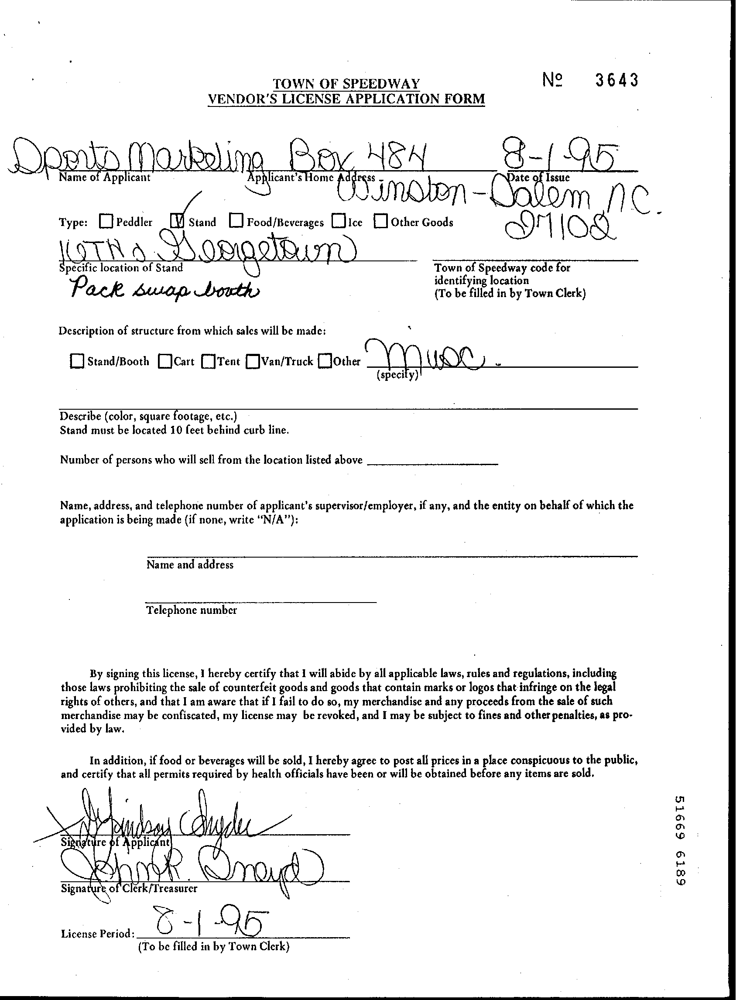 TOWN OF SPEEDWAY
VENDOR'S LICENSE APPLICATION FORM
Nº 3643
Sports Marketing Box 484 8-1-95
Name of Applicant Applicant's Home Address Date of Issue
Winston-Salem, N.C.
27102
Type: Peddler Stand Food/Beverages Ice Other Goods
16TH & Georgetown
Specific location of Stand
Pack swap booth
Town of Speedway code for
identifying location
(To be filled in by Town Clerk)
Description of structure from which sales will be made:
Stand/Booth Cart Tent Van/Truck Other Misc.
(specify)
Describe (color, square footage, etc.)
Stand must be located 10 feet behind curb line.
Number of persons who will sell from the location listed above
Name, address, and telephone number of applicant's supervisor/employer, if any, and the entity on behalf of which the
application is being made (if none, write "N/A"):
Name and address
Telephone number
By signing this license, I hereby certify that I will abide by all applicable laws, rules and regulations, including
those laws prohibiting the sale of counterfeit goods and goods that contain marks or logos that infringe on the legal
rights of others, and that I am aware that if I fail to do so, my merchandise and any proceeds from the sale of such
merchandise may be confiscated, my license may be revoked, and I may be subject to fines and other penalties, as pro-
vided by law.
In addition, if food or beverages will be sold, I hereby agree to post all prices in a place conspicuous to the public,
and certify that all permits required by health officials have been or will be obtained before any items are sold.
Signature of Applicant
Signature of Clerk/Treasurer
License Period: 8-1-95
(To be filled in by Town Clerk)
51669 6189